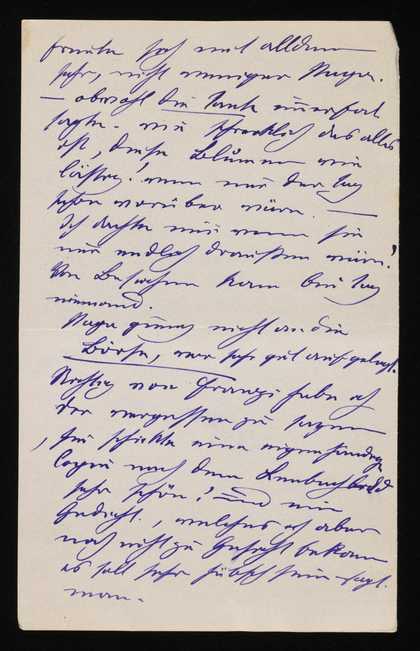 freute sich mit alldem
sehr, nicht weniger Papa.
– obwohl die Tante immerfort
sagte – wie schrecklich das alles
ist, diese Blumen wie
lästig! wenn nur der Tag
schon vorüber wäre. –
Ich dachte mir wenn sie
nur endlich draußen wäre!
Von Besuchen kam bei Tag
niemand.
Papa ging nicht an die
Börse, war sehr gut aufgelegt.
von Franzi habe ich
Dir vergessen zu sagen
, sie schickte eine eigenhändige
Copie nach dem Lenbachbild
sehr schön! und ein
Gedicht, welches ich aber
noch nicht zu Gesicht bekam
es soll sehr hübsch sein sagt
man.